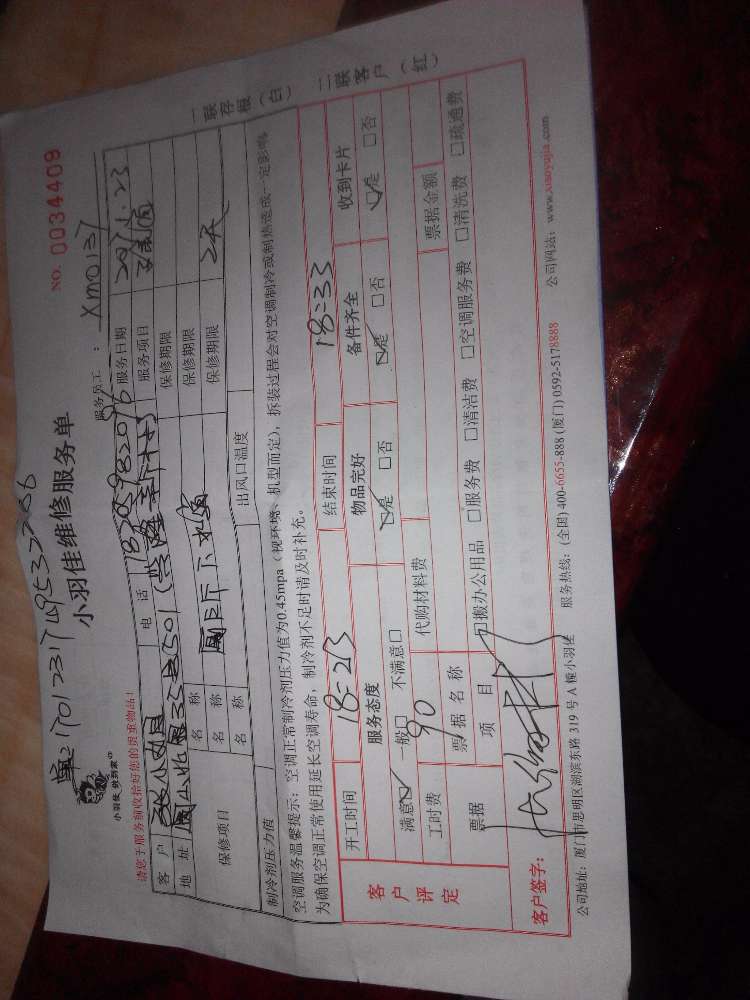 NO. 0034409
小羽佳维修服务单
小羽佳 做到家
服务员工： Xm0131
请您于服务前收拾好您的贵重物品！
客户
电话
服务日期
地址
服务项目
保修项目
名称
保修期限
名称
保修期限
名称
保修期限 2天
制冷剂压力值
出风口温度
空调服务温馨提示：空调正常制冷剂压力值为0.45mpa（视环境、机型而定），拆装过程会对空调制冷或制热造成一定影响
为确保空调正常使用延长空调寿命，制冷剂不足时请及时补充。
一联存根（白） 二联客户（红）
客户评定
开工时间 18:23 结束时间 18:33
服务态度 物品完好 备件齐全 收到卡片
满意☑ 一般□ 不满意□ ☑是 □否 ☑是 □否 ☑是 □否
工时费 90 代购材料费
票据 票据名称 票据金额
项目 □搬办公用品 □服务费 □清洁费 □空调服务费 □清洗费 □疏通费
客户签字：
公司地址：厦门市思明区湖滨东路 319 号 A 幢小羽佳 服务热线：(全国) 400-6655-888 (厦门) 0592-5178888 公司网站：www.xiaoyujia.com